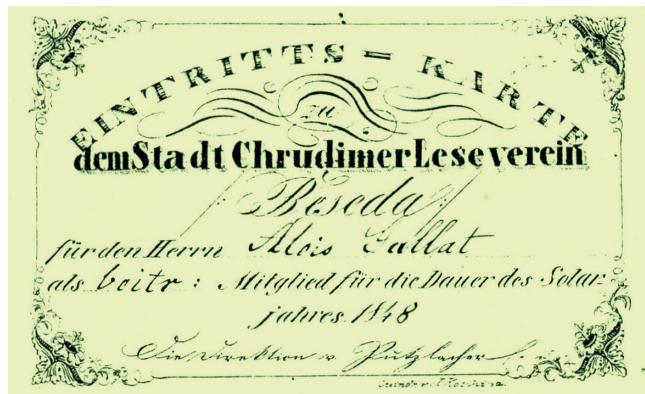 EINTRITTS = KARTE
zu
dem Stadt Chrudimer Leseverein
/: Beseda :/
für den Herrn Alois Gallat
als beitr: Mitglied für die Dauer des Solar-
jahres 1848
Die Direktion v. Putzlacher